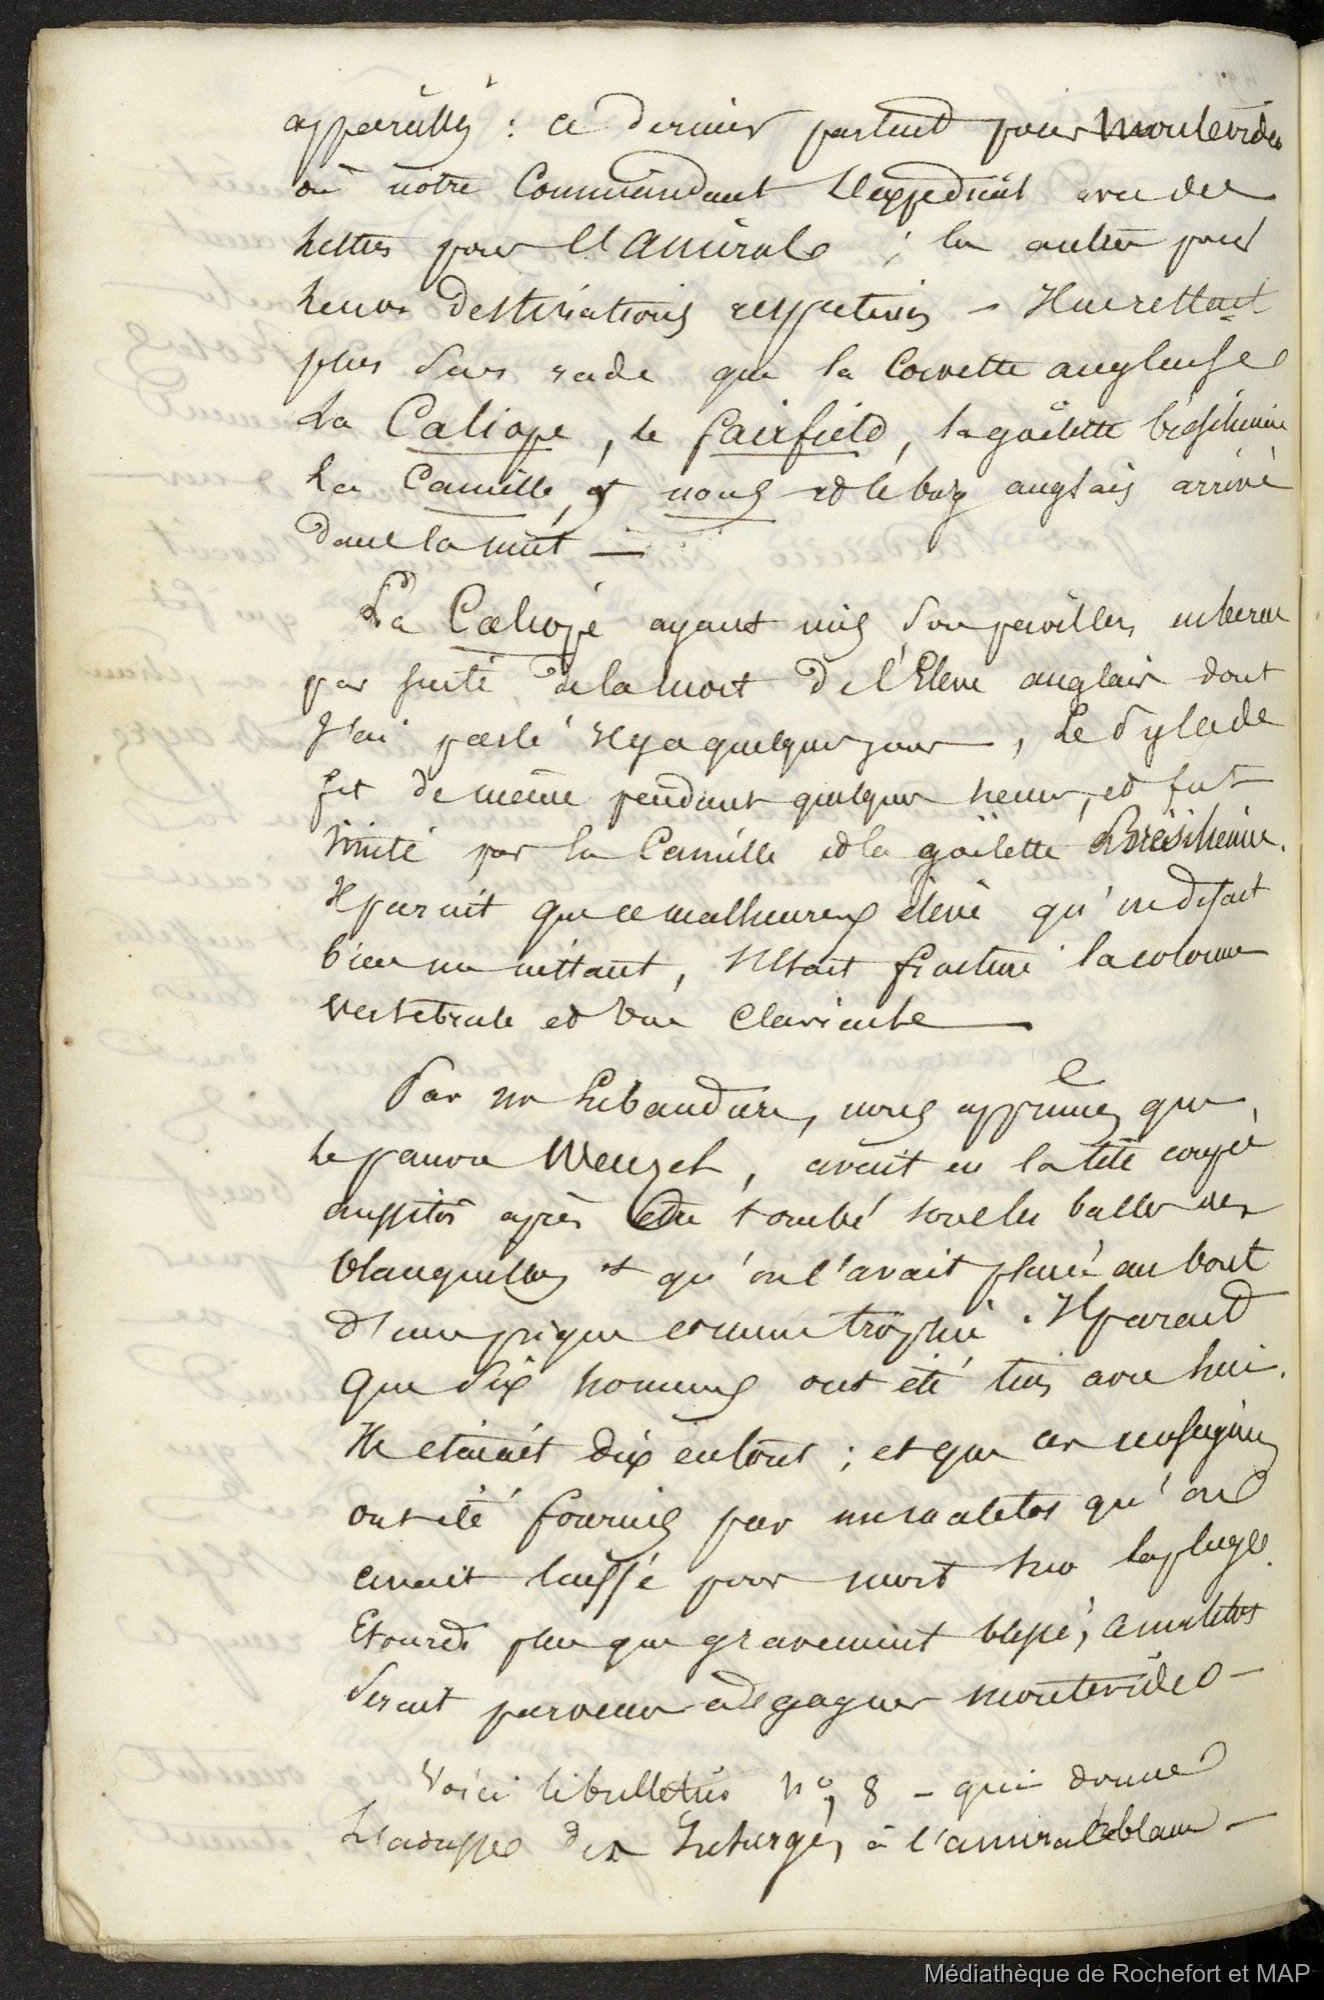 appareillé : ce dernier partant pour Montevideo
où notre Commandant l'expédiait avec des
lettres pour l'Amirale ; les autres pour
leurs destinations respectives – Il ne restait
plus sur rade que la Corvette anglaise
La Caliope, le Fairfield, la goëlette brésilienne
La Camille, et nous et le brig anglais arrivé
dans la nuit —
La Caliope ayant mis son pavillon en berne
par suite de la mort de l'Elève anglais dont
j'ai parlé il y a quelques jours, Le Pylade
fit de même pendant quelques heures, et fut
imité par la Camille et la goëlette Brésilienne.
Il parait que ce malheureux élève qu'on disait
bien un instant, s'était fracturé la colonne
vertébrale et une clavicule —
Par Mr Lebaudure, nous apprîmes que,
le pauvre Wenzel, avait eu la tête coupée
aussitôt après être tombé sous les balles des
blanquillos et qu'on l'avait placée au bout
d'une pique comme trophée. Il parait
que six hommes ont été tués avec lui.
Ils étaient dix en tout ; et que ces renseignemens
ont été fournis par un matelot qu'on
avait laissé pour mort sur la plage.
Etourdi plus que gravement blessé, ce matelot
serait parvenu à regagner Montevideo –
Voici le bulletin n°. 8 – qui donne
l'adresse des Insurgés à l'amiral Leblanc –
Médiathèque de Rochefort et MAP